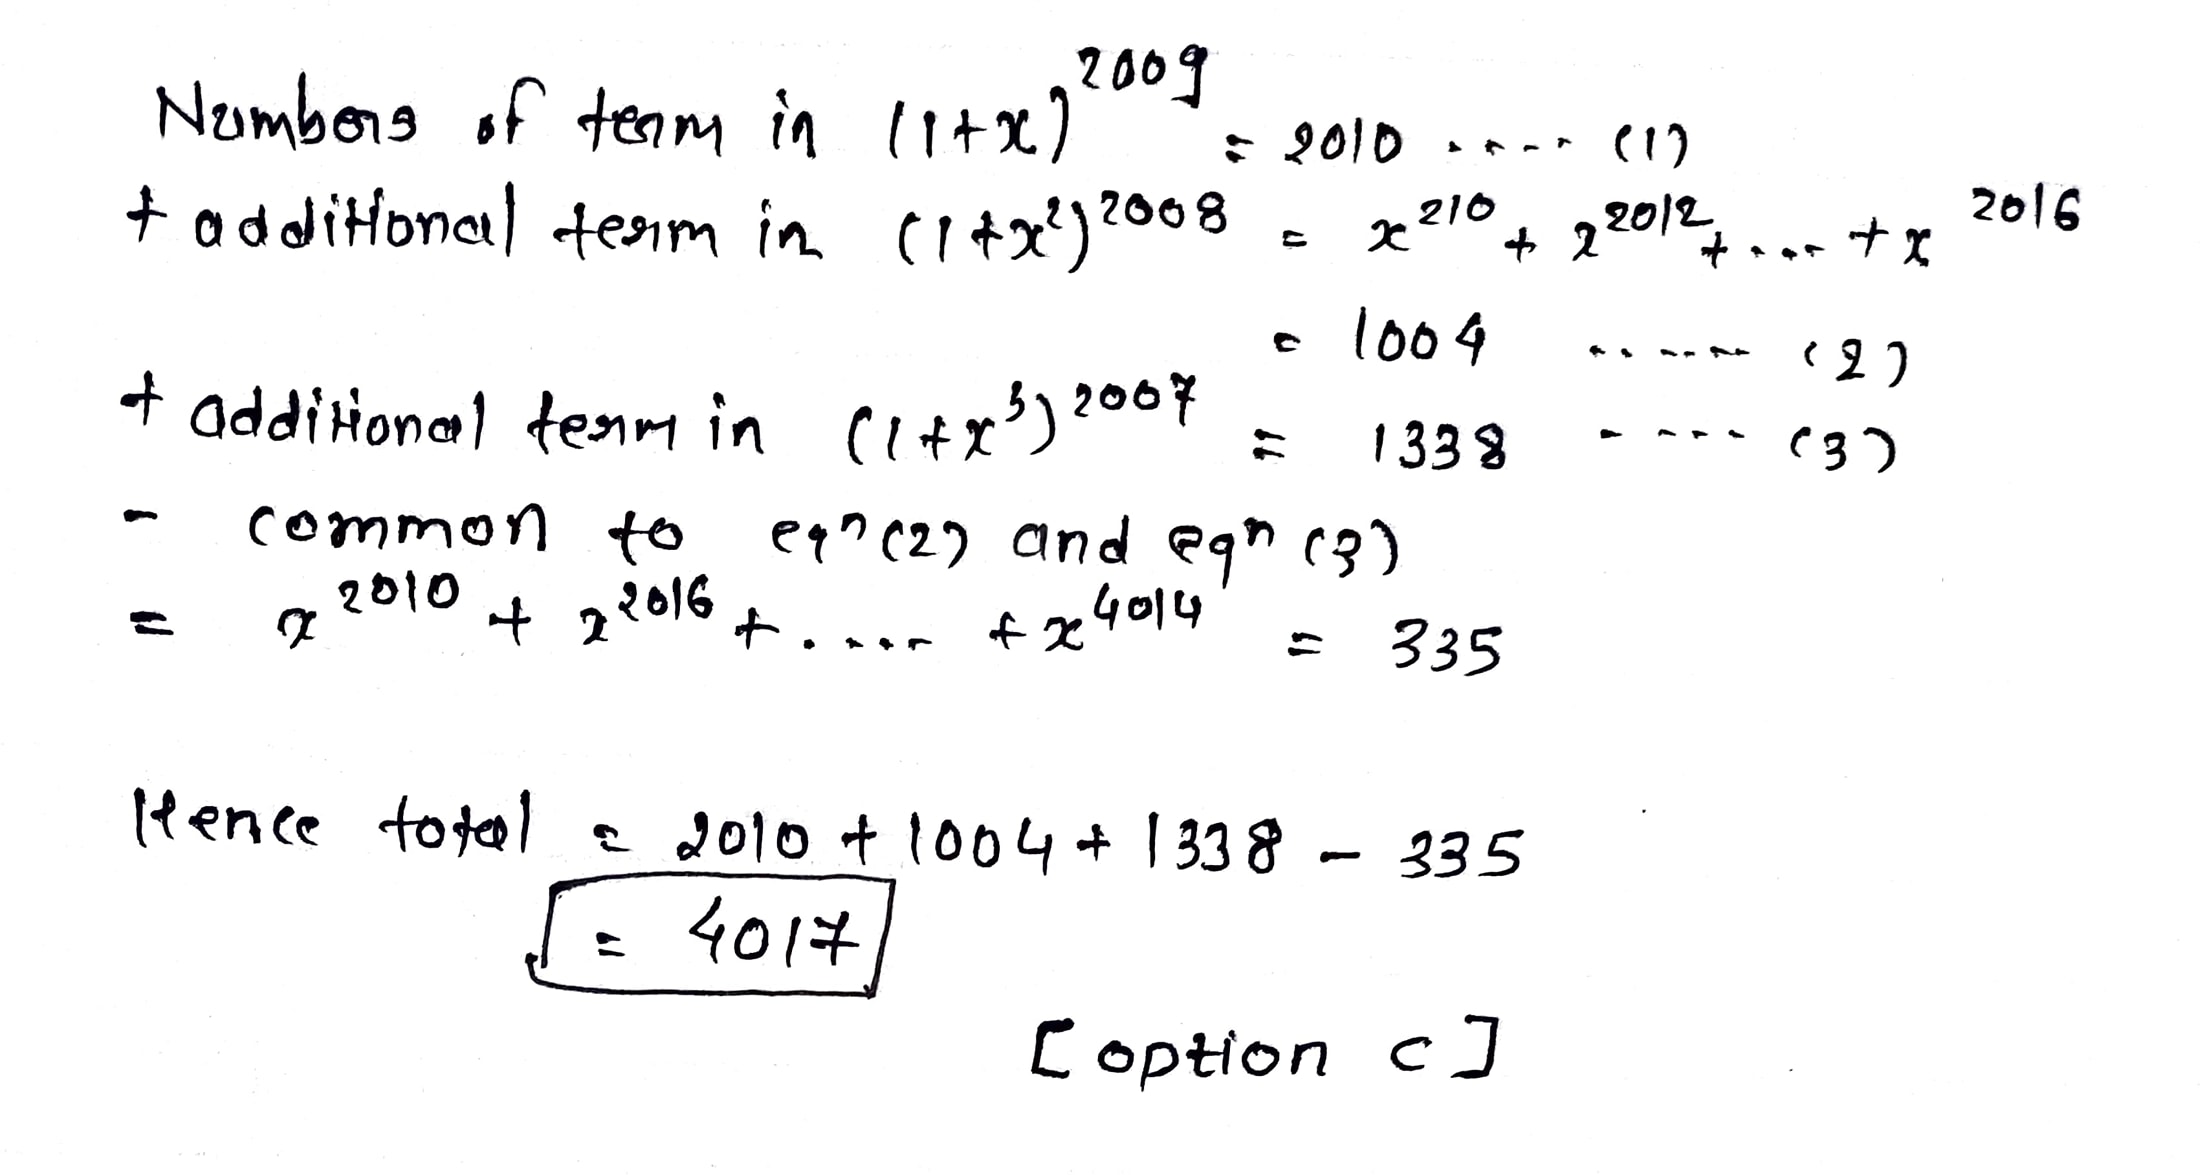 Numbers of term in (1+x)^2009 = 2010 ..... (1)
+ additional term in (1+x²)^2008 = x^210 + x^2012 + .... + x^2016
= 1004 ...... (2)
+ additional term in (1+x³)^2007 = 1338 ..... (3)
- common to eqn (2) and eqn (3)
= x^2010 + x^2016 + ..... + x^4014 = 335
Hence total = 2010 + 1004 + 1338 - 335
= 4017
[option c]